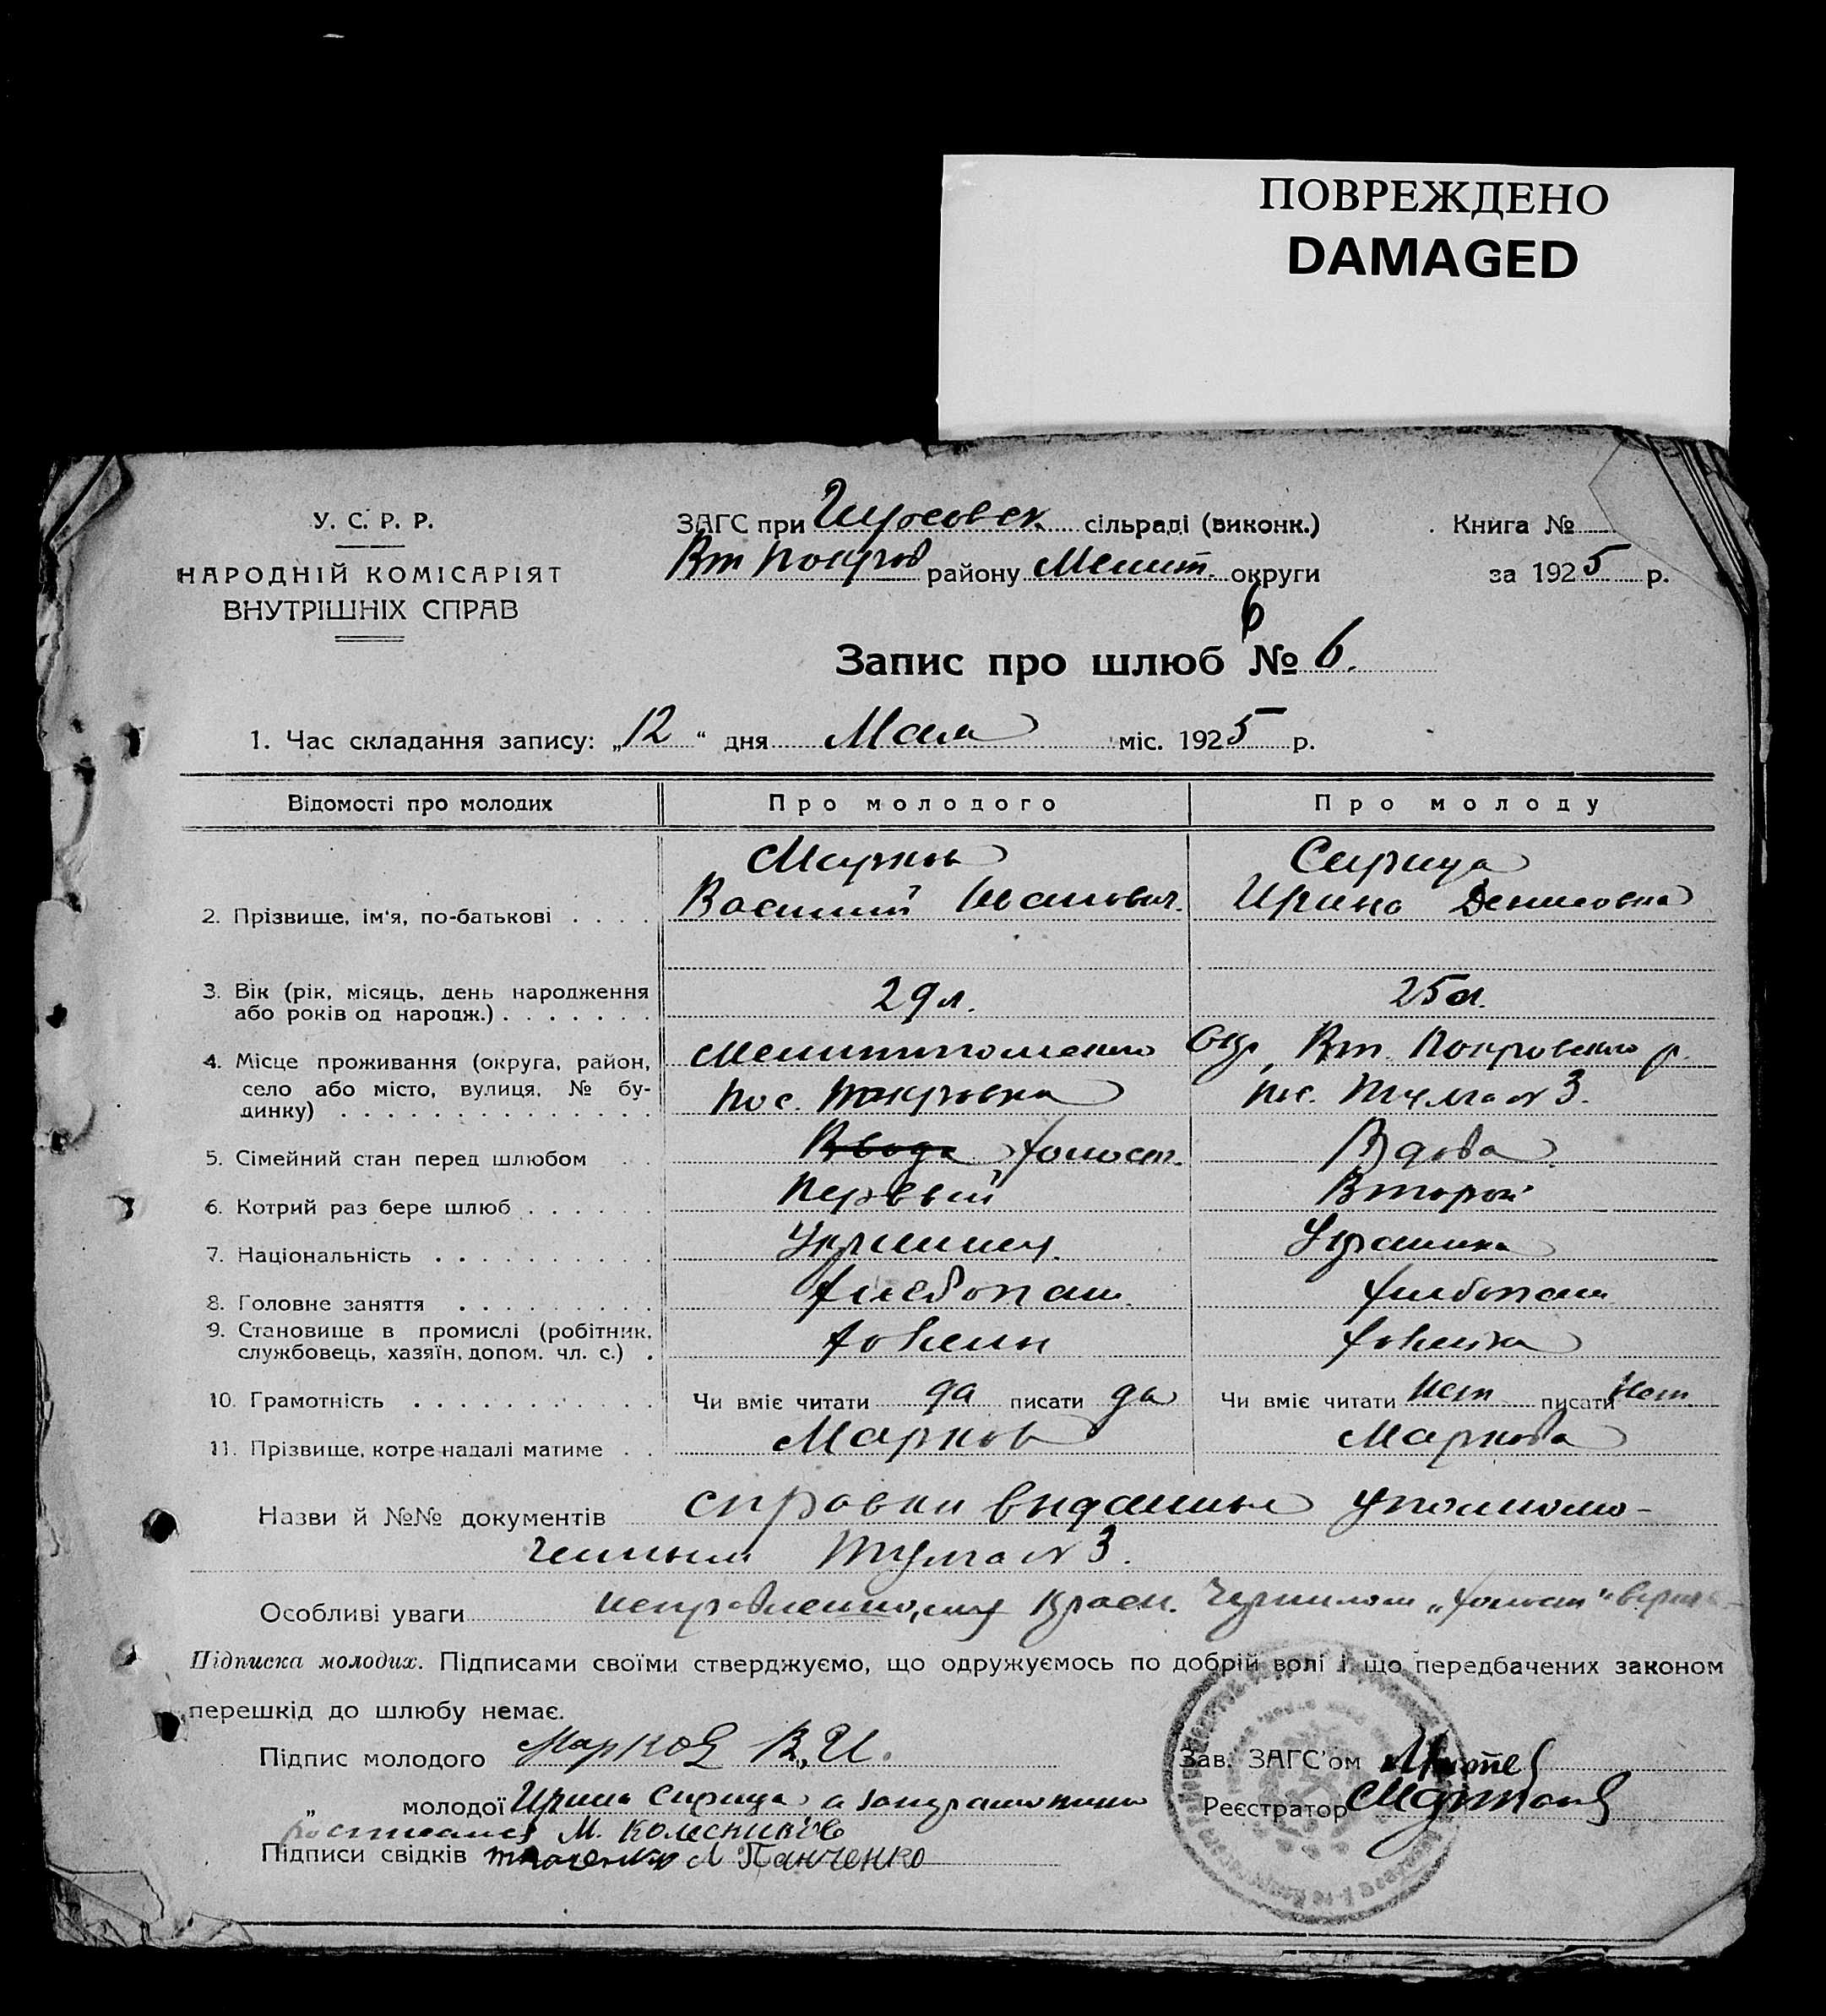 ПОВРЕЖДЕНО
DAMAGED
У. С. Р. Р.
НАРОДНІЙ КОМІСАРІЯТ
ВНУТРІШНІХ СПРАВ
ЗАГС при сільраді (виконк.)
Вт Покров району Мелит. округи
Книга №
за 1925 р.
6
Запис про шлюб № 6.
1. Час складання запису: „12“ дня Мая міс. 1925 р.
Відомості про молодих Про молодого Про молоду
Марков Сирица
2. Прізвище, ім'я, по-батькові . . . . Василий Иванович. Ирина Денисовна
3. Вік (рік, місяць, день народження
або років од народж.) . . . . . . . 29 л. 25 л.
4. Місце проживання (округа, район, Мелитопольского Окр, Вт. Покровского р.
село або місто, вулиця, № бу-
динку) . . . . . . . . . . . . . . пос. Покровка пос. №3.
5. Сімейний стан перед шлюбом . . холост. Вдова
6. Котрий раз бере шлюб . . . . . . Первый Второй
7. Національність . . . . . . . . . . Украинец. Украинка
8. Головне заняття . . . . . . . . . хлебопаш. хлебопаш
9. Становище в промислі (робітник,
службовець, хазяїн, допом. чл. с.) . хозяин хозяйка
10. Грамотність . . . . . . . . . . . Чи вміє читати да писати да Чи вміє читати нет писати нет.
11. Прізвище, котре надалі матиме . . Марков Маркова
Назви й №№ документів справки выданные уполномо-
ченным №3.
Особливі уваги исправленному красн. чернилом „холост“
Підписка молодих. Підписами своїми стверджуємо, що одружуємось по добрій волі і що передбачених законом
перешкід до шлюбу немає.
Підпис молодого Марков В. И.
Зав. ЗАГС'ом
„ молодої Ирина Сирица а
Реєстратор
росписался М. Колесников
Підписи свідків Ткаченко Л Панченко